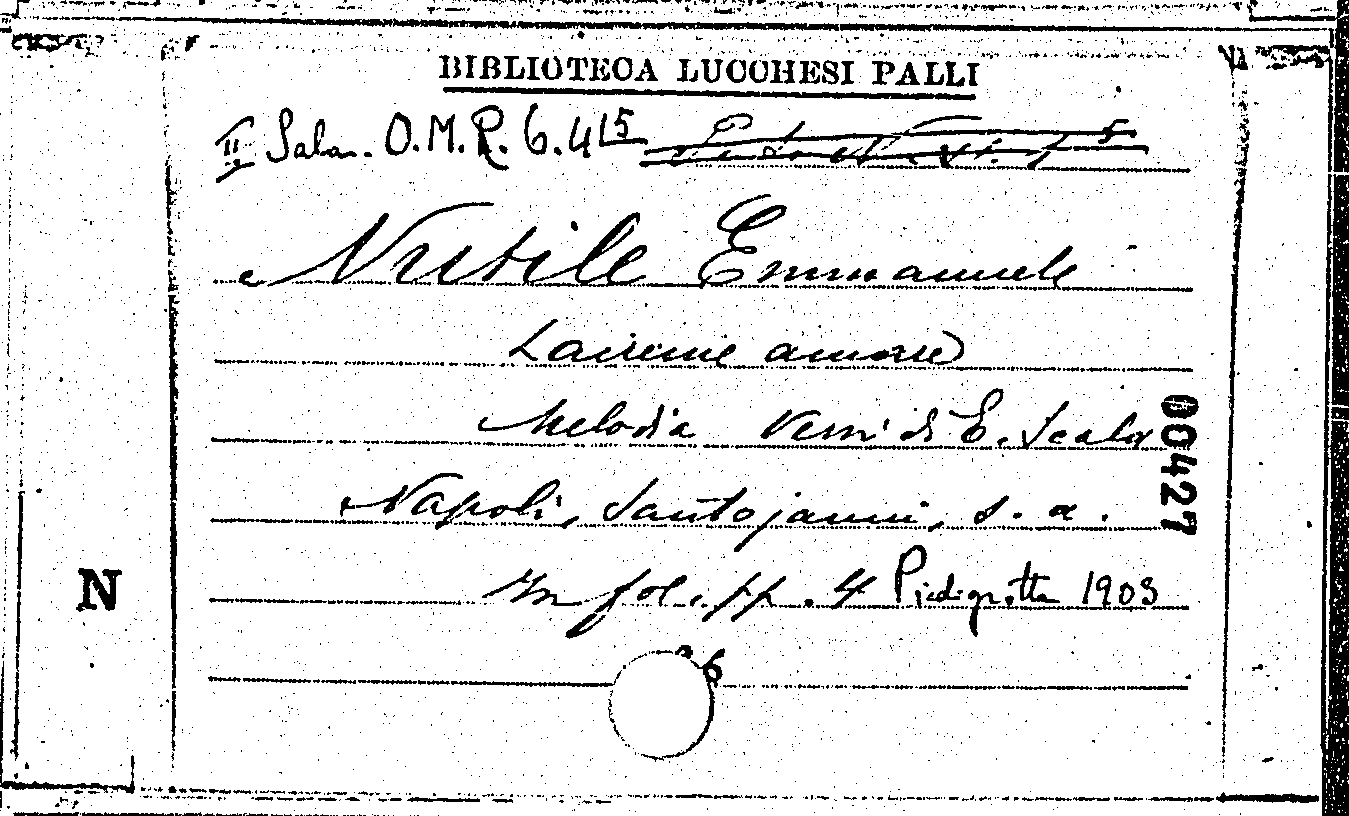 BIBLIOTECA LUCCHESI PALLI
II Sala. O.M.R. 6. 4 15
Nutile Emmanuele
amore
Melodia Versi di E. Scala
00427
Napoli, Santojanni, s. a.
In fol. pp. 4 Piedigrotta 1903
N
6